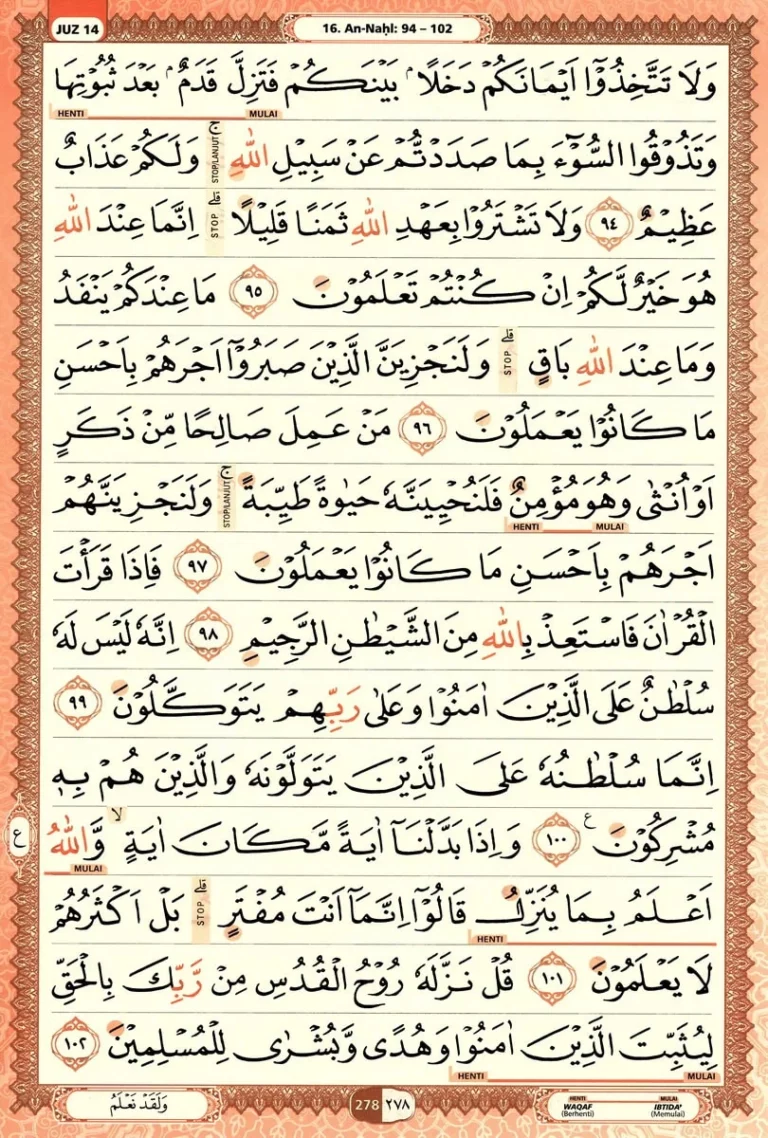 JUZ 14
16. An-Naḥl: 94 – 102
وَلَا تَتَّخِذُوْٓا اَيْمَانَكُمْ دَخَلًاۢ بَيْنَكُمْ فَتَزِلَّ قَدَمٌۢ بَعْدَ ثُبُوْتِهَا
HENTI MULAI
وَتَذُوْقُوا السُّوْۤءَ بِمَا صَدَدْتُّمْ عَنْ سَبِيْلِ اللّٰهِ ۚ STOP/LANJUT وَلَكُمْ عَذَابٌ
عَظِيْمٌ ٩٤ وَلَا تَشْتَرُوْا بِعَهْدِ اللّٰهِ ثَمَنًا قَلِيْلًا ۗ STOP اِنَّمَا عِنْدَ اللّٰهِ
هُوَ خَيْرٌ لَّكُمْ اِنْ كُنْتُمْ تَعْلَمُوْنَ ٩٥ مَا عِنْدَكُمْ يَنْفَدُ
وَمَا عِنْدَ اللّٰهِ بَاقٍ ۗ STOP وَلَنَجْزِيَنَّ الَّذِيْنَ صَبَرُوْٓا اَجْرَهُمْ بِاَحْسَنِ
مَا كَانُوْا يَعْمَلُوْنَ ٩٦ مَنْ عَمِلَ صَالِحًا مِّنْ ذَكَرٍ
اَوْ اُنْثٰى وَهُوَ مُؤْمِنٌ فَلَنُحْيِيَنَّهٗ حَيٰوةً طَيِّبَةً ۚ STOP/LANJUT وَلَنَجْزِيَنَّهُمْ
HENTI MULAI
اَجْرَهُمْ بِاَحْسَنِ مَا كَانُوْا يَعْمَلُوْنَ ٩٧ فَاِذَا قَرَأْتَ
الْقُرْاٰنَ فَاسْتَعِذْ بِاللّٰهِ مِنَ الشَّيْطٰنِ الرَّجِيْمِ ٩٨ اِنَّهٗ لَيْسَ لَهٗ
سُلْطٰنٌ عَلَى الَّذِيْنَ اٰمَنُوْا وَعَلٰى رَبِّهِمْ يَتَوَكَّلُوْنَ ٩٩
اِنَّمَا سُلْطٰنُهٗ عَلَى الَّذِيْنَ يَتَوَلَّوْنَهٗ وَالَّذِيْنَ هُمْ بِهٖ
ع
مُشْرِكُوْنَ ١٠٠ ع وَاِذَا بَدَّلْنَآ اٰيَةً مَّكَانَ اٰيَةٍ ۙ وَّاللّٰهُ
MULAI
اَعْلَمُ بِمَا يُنَزِّلُ قَالُوْٓا اِنَّمَآ اَنْتَ مُفْتَرٍ ۗ STOP بَلْ اَكْثَرُهُمْ
HENTI
لَا يَعْلَمُوْنَ ١٠١ قُلْ نَزَّلَهٗ رُوْحُ الْقُدُسِ مِنْ رَّبِّكَ بِالْحَقِّ
لِيُثَبِّتَ الَّذِيْنَ اٰمَنُوْا وَهُدًى وَّبُشْرٰى لِلْمُسْلِمِيْنَ ١٠٢
HENTI MULAI
وَلَقَدْ نَعْلَمُ
278 ٢٧٨
HENTI MULAI
WAQAF IBTIDA'
(Berhenti) (Memulai)